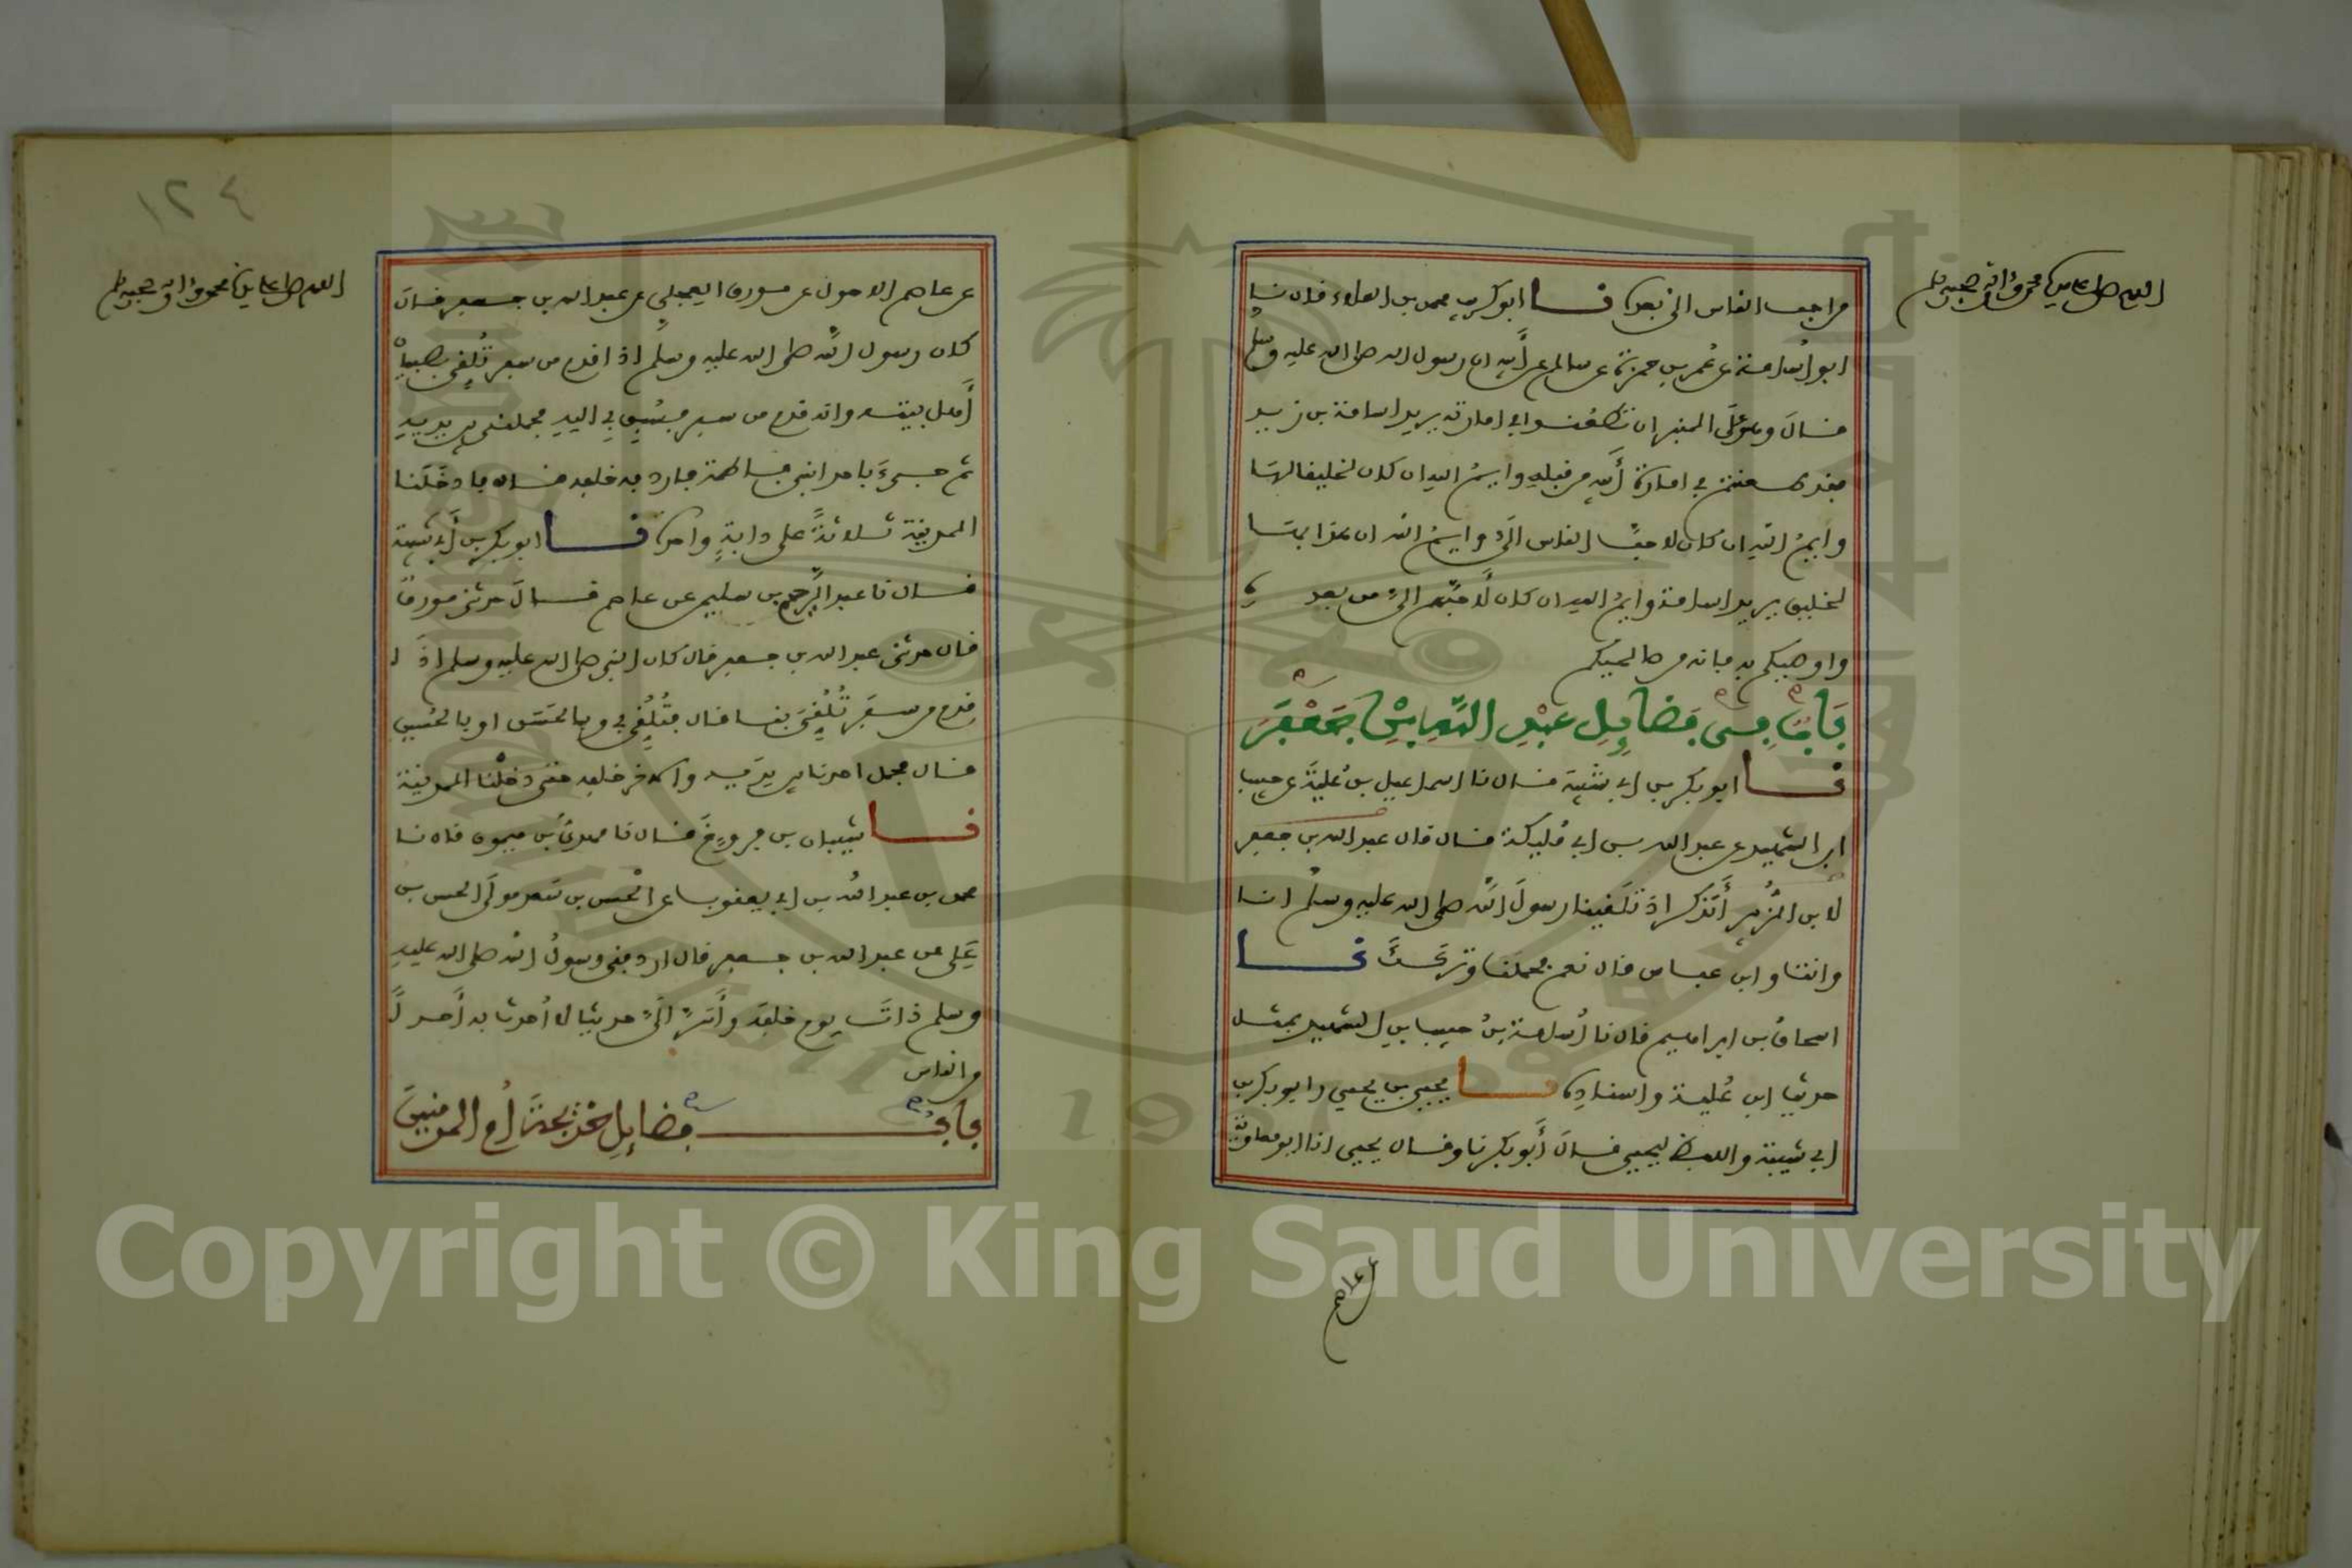 اللهم صل على سيدنا محمد وآله وصحبه وسلم
من احب الناس الي بعده نا ابو كريب محمد بن العلاء قال نا
ابو اسامة عن عمر بن حمزة عن سالم عن أبيه ان رسول الله صلى الله عليه وسلم
قال وهو على المنبر ان تطعنوا في امارته يريد اسامة بن زيد
فقد طعنتم في امارة أبيه من قبله وايم الله ان كان لخليقا لها
وأيم الله ان كان لاحب الناس الي وايم الله ان هذا لها
لخليق يريد اسامة وايم الله ان كان لأحبهم الي من بعده
واوصيكم به فانه من صالحيكم
باب من فضايل عبد الله بن جعفر
نا ابو بكر بن ابي شيبة قال نا اسماعيل بن علية عن حبيب
ابن الشهيد عن عبد الله بن ابي مليكة قال قال عبد الله بن جعفر
لابن الزبير أتذكر اذ تلقينا رسول الله صلى الله عليه وسلم انا
وانت وابن عباس قال نعم فحملنا وتركك نا
اسحاق بن ابراهيم قال نا أبو اسامة عن حبيب بن الشهيد بمثل
حديث ابن علية واسناده نا يحيى بن يحيى وابو بكر بن
ابي شيبة واللفظ ليحيى قال أبو بكر نا وقال يحيى انا ابو معاوية
عن عاصم
١٢٤
اللهم صل على سيدنا محمد وآله وصحبه وسلم
عن عاصم الاحول عن مورق العجلي عن عبد الله بن جعفر قال
كان رسول الله صلى الله عليه وسلم اذا قدم من سفر تلقي بصبيان
أهل بيته وانه قدم من سفر فسبق بي اليه فحملني بين يديه
ثم جيء باحد ابني فاطمة فاردفه خلفه قال فادخلنا
المدينة ثلاثة على دابة واحدة نا ابو بكر بن أبي شيبة
قال نا عبد الرحيم بن سليمن عن عاصم قال حدثني مورق
قال حدثني عبد الله بن جعفر قال كان النبي صلى الله عليه وسلم اذا
قدم من سفر تلقي بنا قال فتلقي بي وبالحسن او بالحسين
قال فحمل احدنا بين يديه والاخر خلفه حتى دخلنا المدينة
نا شيبان بن فروخ قال نا مهدي بن ميمون قال نا
محمد بن عبد الله بن ابي يعقوب عن الحسن بن سعد مولى الحسن بن
علي عن عبد الله بن جعفر قال اردفني رسول الله صلى الله عليه
وسلم ذات يوم خلفه وأسر الي حديثا لا أحدث به أحدا
من الناس
باب فضايل خديجة أم المومنين